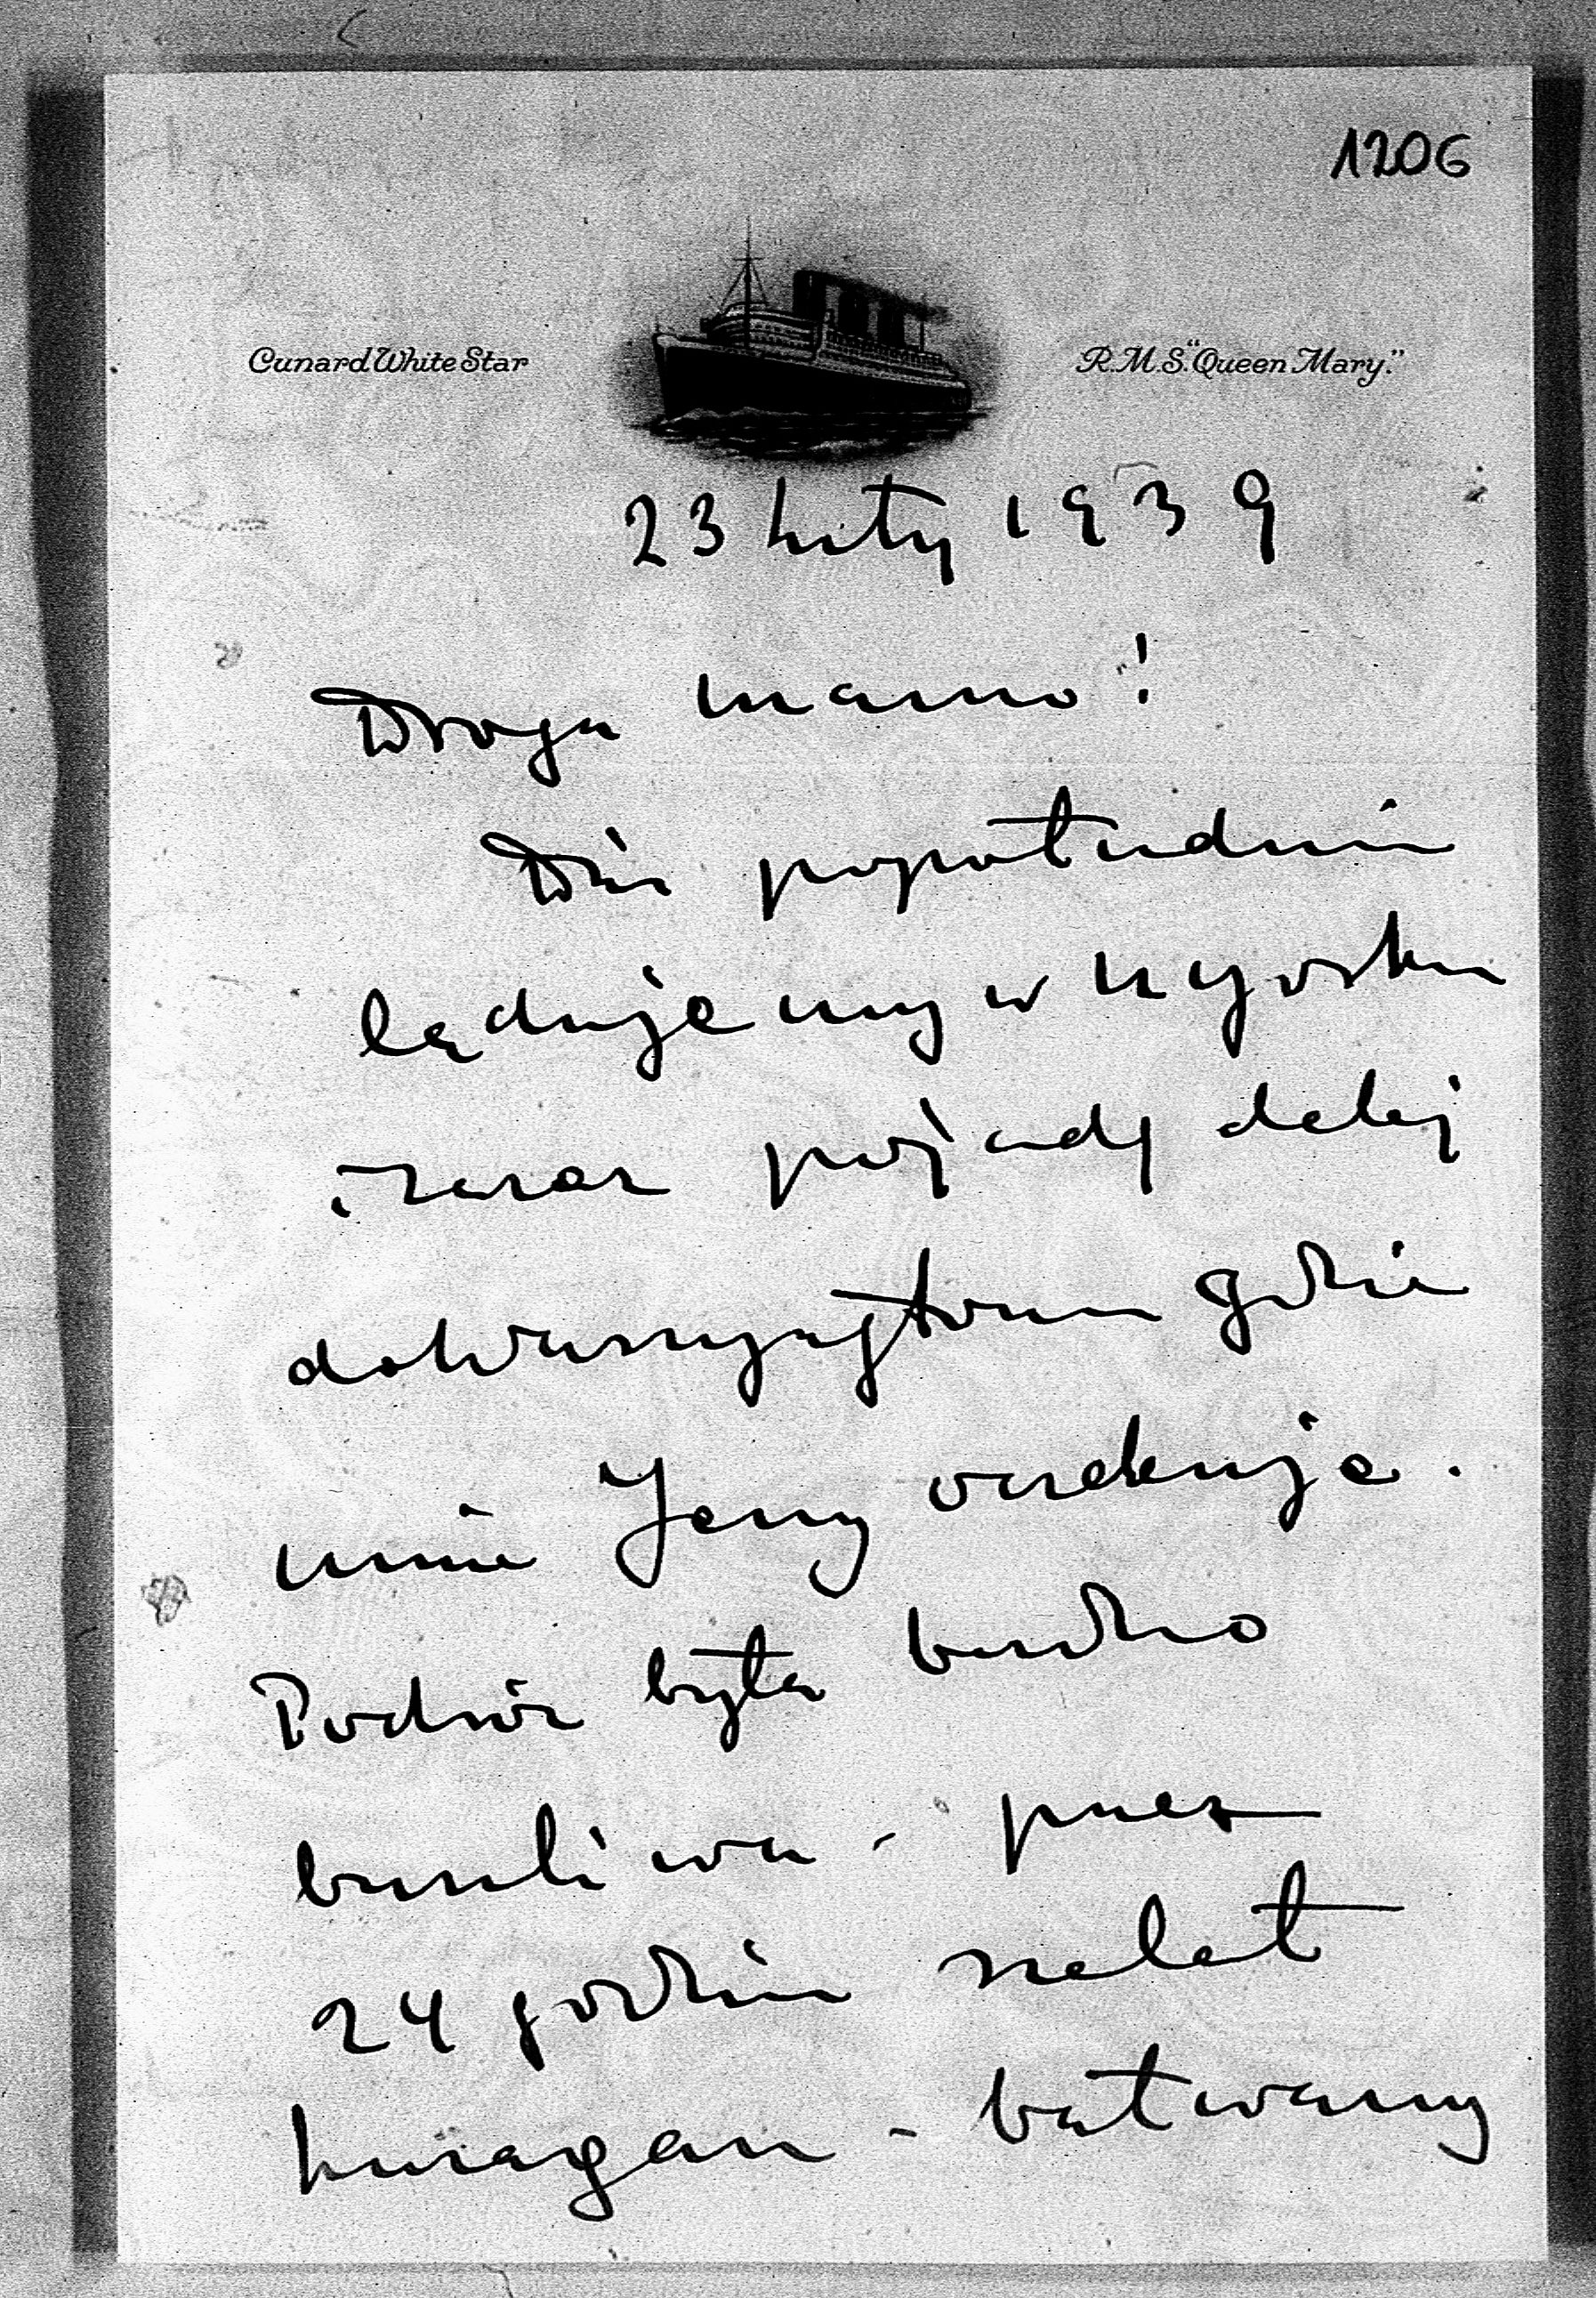 1206
Cunard White Star
R.M.S. "Queen Mary."
23 luty 1939
Droga mamo!
Dziś popołudniu
lądujemy w N Yorku
i zaraz pojadę dalej
do Waszyngtonu gdzie
mnie Jerzy oczekuje.
Podróż była bardzo
burzliwa - przez
24 godzin szalał
huragan - bałwany